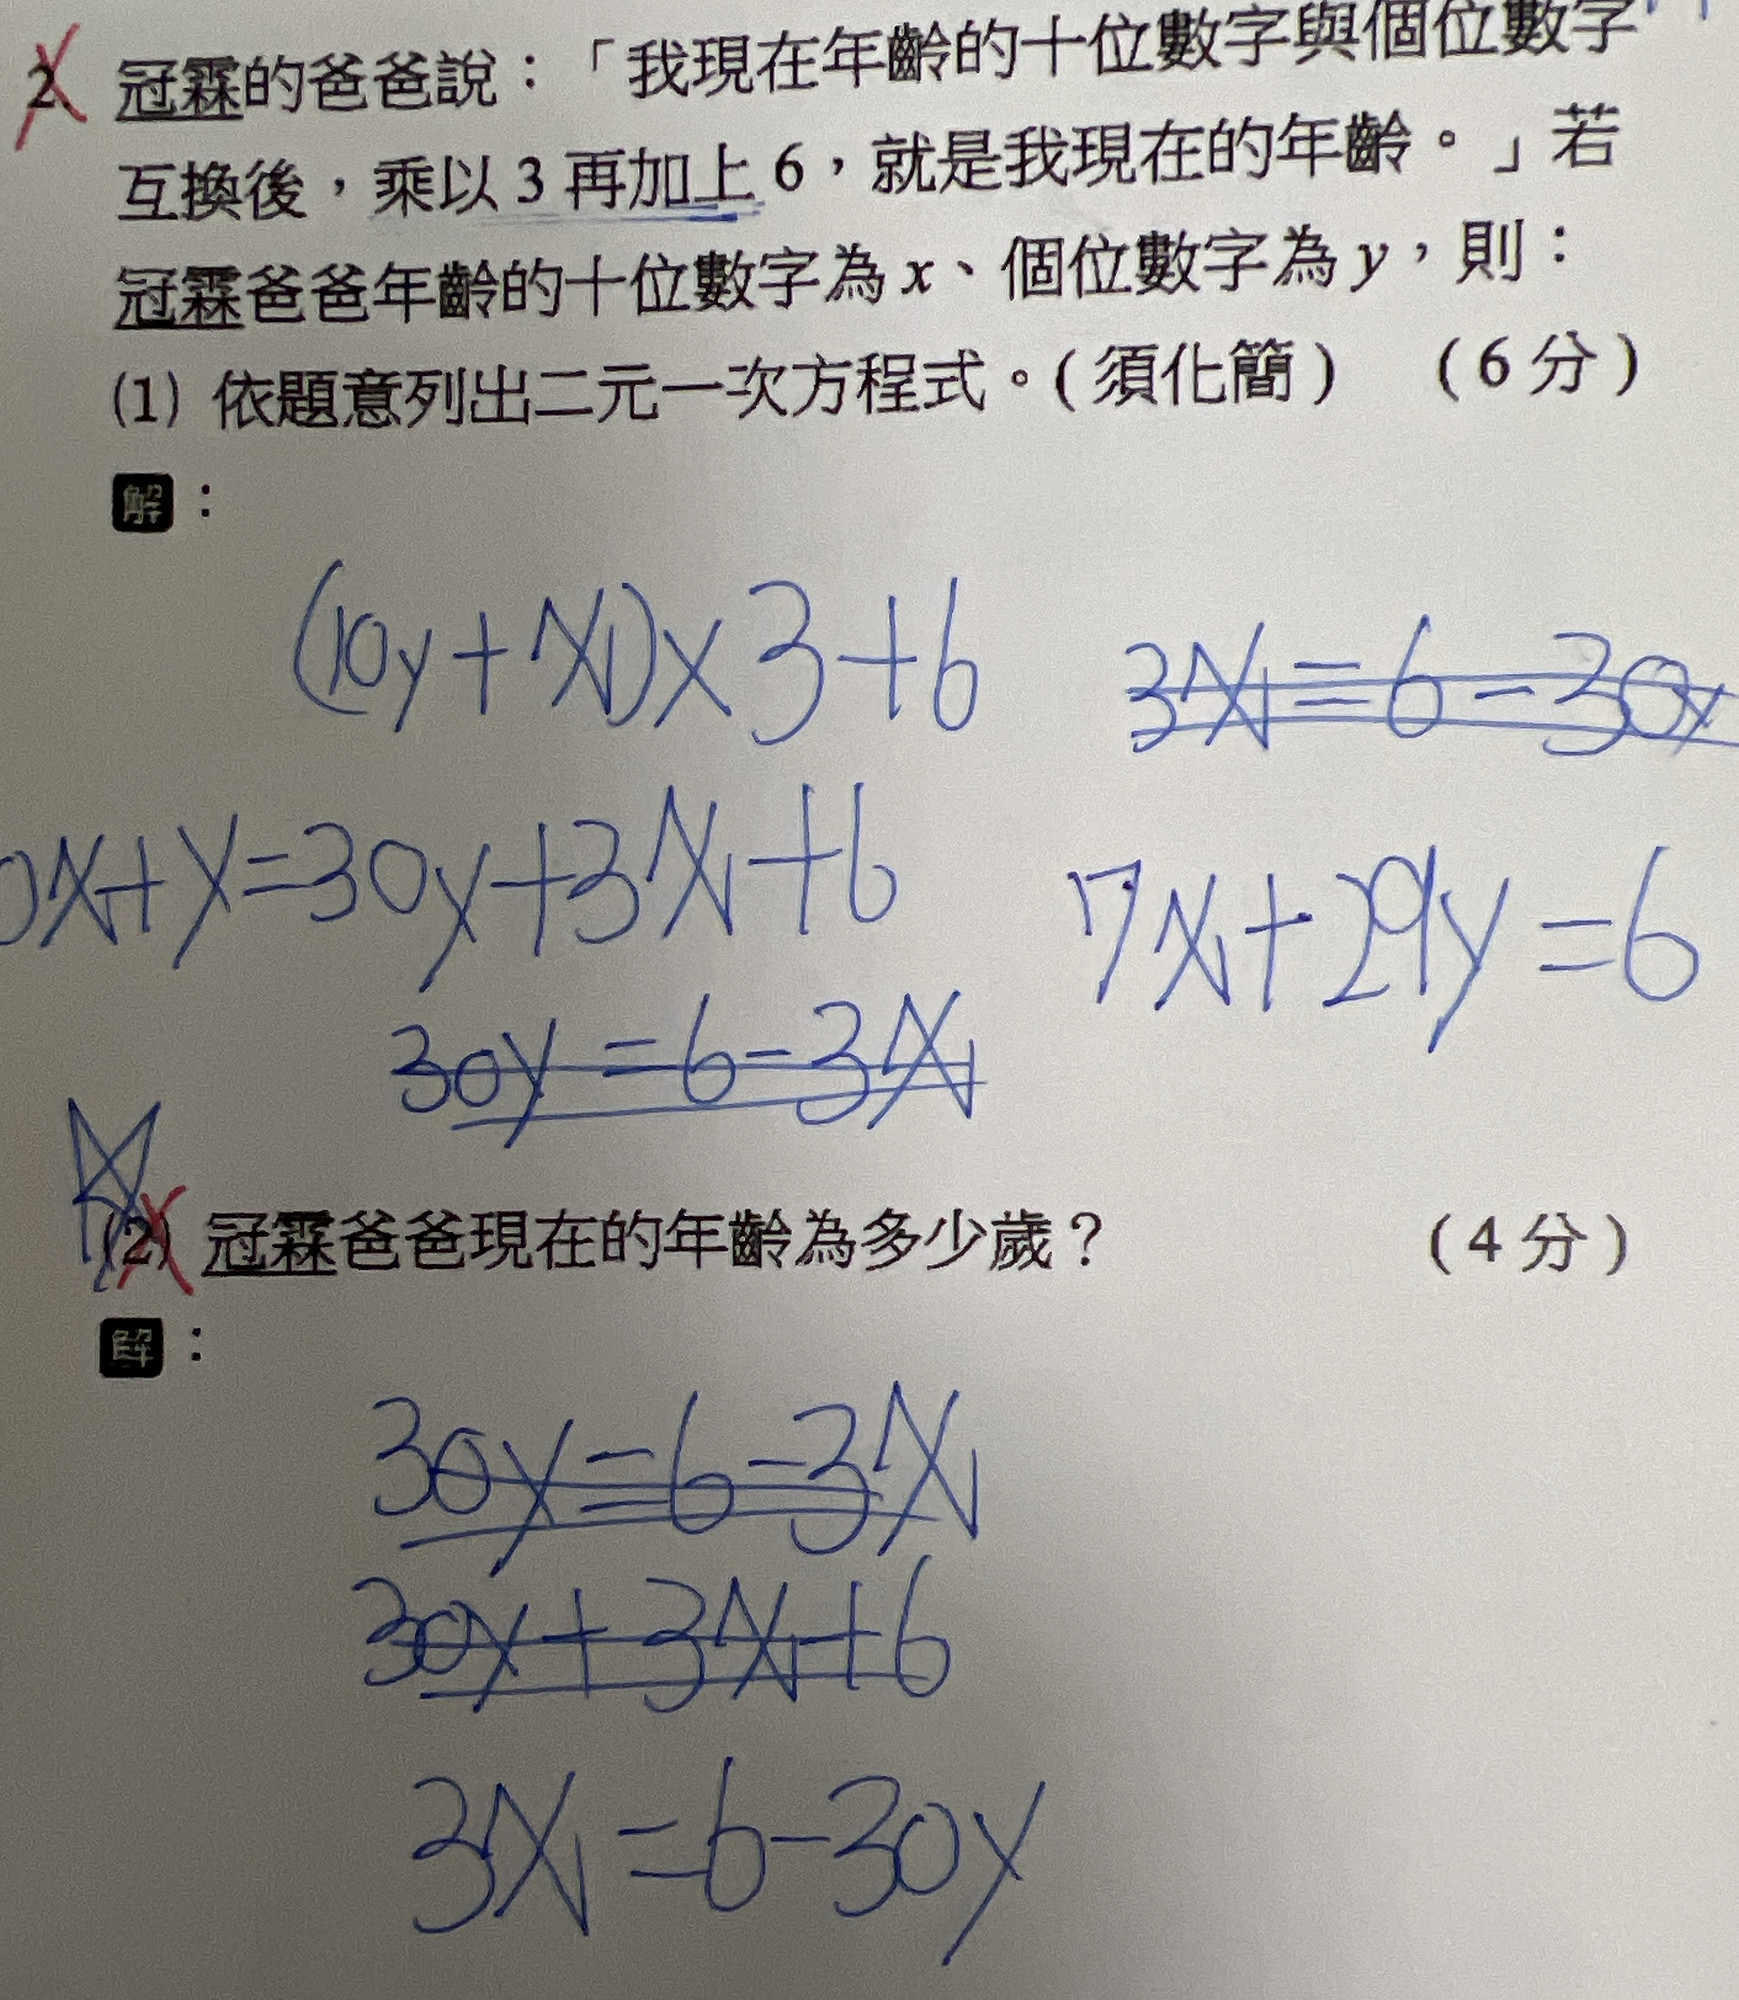 2. 冠霖的爸爸說：「我現在年齡的十位數字與個位數字
互換後，乘以 3 再加上 6，就是我現在的年齡。」若
冠霖爸爸年齡的十位數字為 x、個位數字為 y，則：
(1) 依題意列出二元一次方程式。(須化簡) (6 分)
解：
(10y+x)×3+6
3x=6-30y
0x+y=30y+3x+6
7x+29y=6
30y=6-3x
(2) 冠霖爸爸現在的年齡為多少歲？ (4 分)
解：
30y=6-3x
30y+3x+6
3x=6-30y